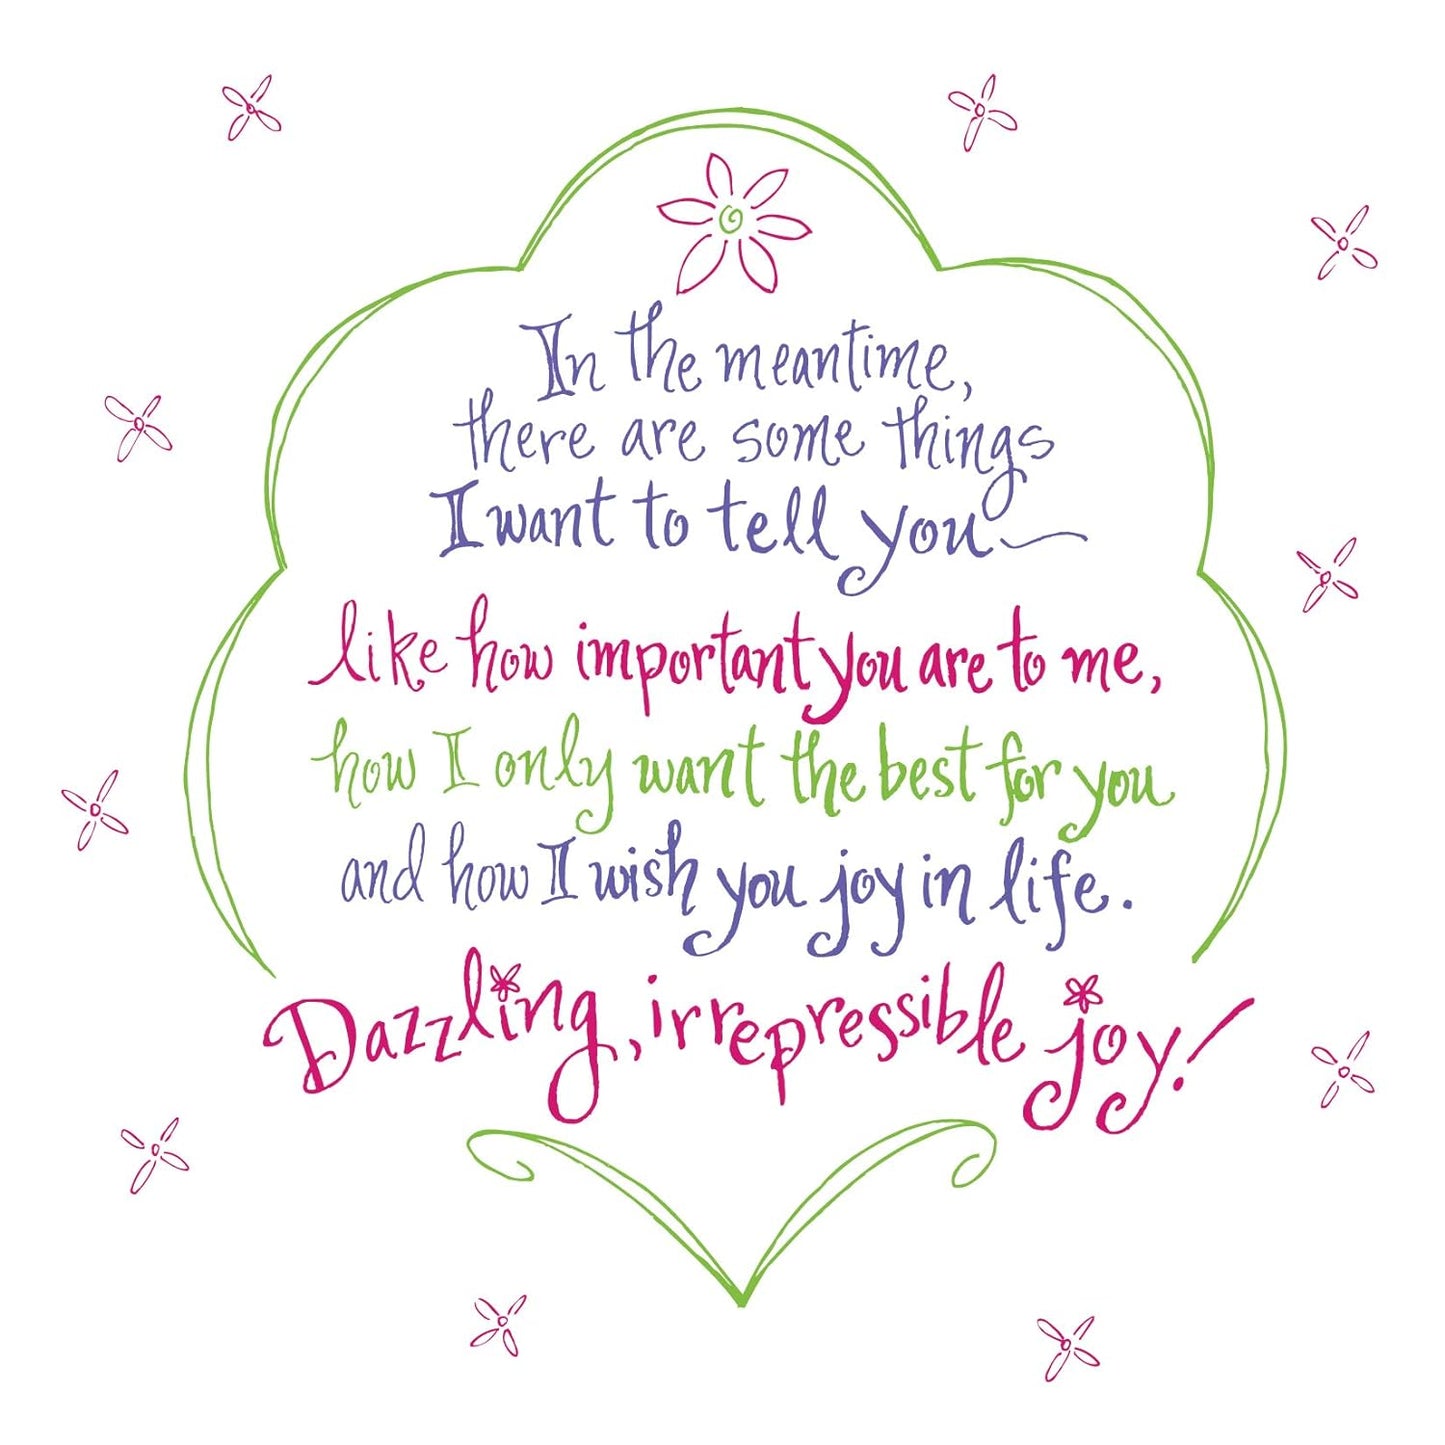 In the meantime,
there are some things
I want to tell you—
like how important you are to me,
how I only want the best for you
and how I wish you joy in life.
Dazzling, irrepressible joy!